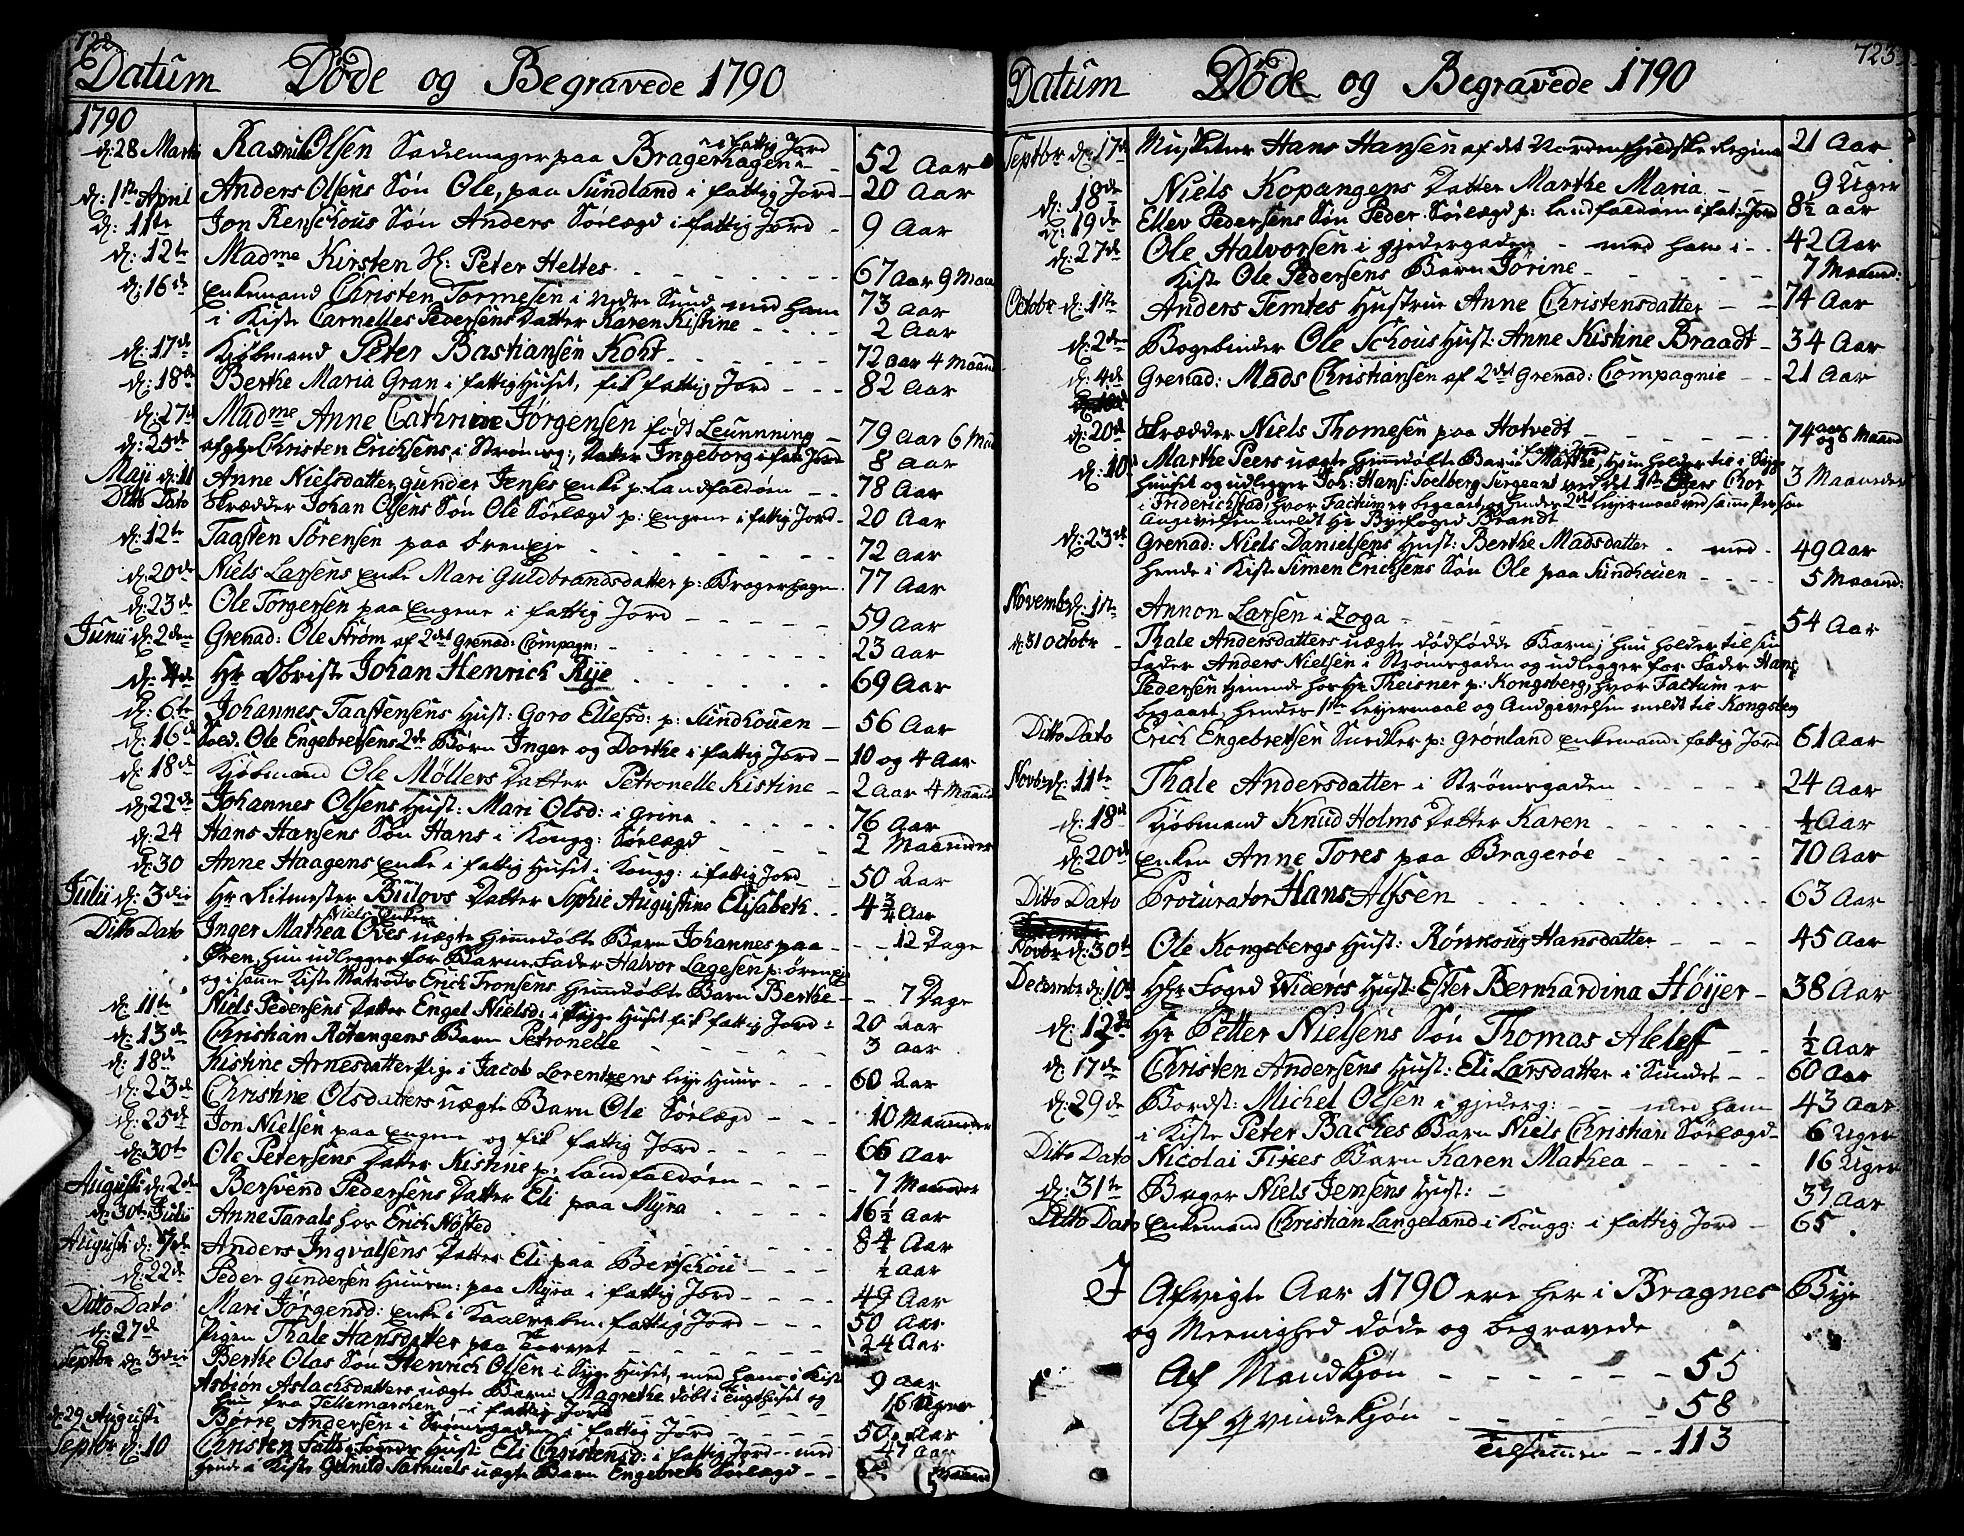 722
Datum Døde og Begravede 1790
1790
d: 28 Martii Rasmus Olsen Sadelmager paa Bragerhagen i fattig Jord 52 Aar
d: 1ste April Anders Olsens Søn Ole, paa Sundland i fattig Jord 20 Aar
d: 11te Jon Renschous Søn Anders Sørlægd i fattig Jord 9 Aar
d: 12te Madme Kirsten Sl: Peter Heltes 67 Aar 9 Maan
d: 16de Enkemand Christen Tormesen i Nedre Sund med ham 73 Aar
i Kiste Carnelles Pedersens Datter Karen Kistine 2 Aar
d: 17de Kjøbmand Peter Bastiansen Koht 72 aar 4 Maan
d: 18de Berthe Maria Gran i fattig Huset, fik fattig Jord 82 Aar
d: 27de Madme Anne Cathrine Jørgensen født Leunnning 79 aar 6 Maa
d: 25de afgdøe Christen Erichsens i Strømsg:, Datter Ingeborg i fatt: Jord 8 aar
Maji d: 11 Anne Nielsdatter, Gunder Jenses Enke p: Landfaldøen 78 Aar
Ditto Dato Skrædder Johan Olsens Søn Ole Sørlægd p: Engene i fattig Jord 20 Aar
d: 12te Taasten Sørensen paa Øreneje 72 aar
d: 20de Niels Larsens Enke Mari Guldbrandsdatter p: Bragerhagen 77 Aar
d: 23de Ole Torgersen paa Engene i fattig Jord 59 Aar
Junii d: 2den Grenad: Ole Strøm af 2det Grenad: Compagn: 23 aar
d: 4de Hr Obriste Johan Henrich Rye 69 Aar
d: 6te Johannes Taastensens Hust: Goro Ellefsd: p: Sundhouen 56 Aar
d: 16de Sold. Ole Engebretsens 2de Børn Inger og Dorthe i fattig Jord 10 og 4 Aar
d: 18de Kjøbmand Ole Møllers Datter Petronelle Kistine 2 Aar 4 Maan
d: 22de Johannes Olsens Hust: Mari Olsd: i Grina 76 Aar
d: 24 Hans Hansens Søn Hans i Kongg: Sørlægd 2 Maaneder
d: 30 Anne Haagens Enke i fattig Huset i Kongg: i fattig Jord 50 Aar
Julii d: 3die Hr Ritmester Bülovs Datter Sophie Augustine Elisabeth 4 3/4 Aar
Ditto Dato Inger Mathea Oves Niels Enkes uægte Hjemmedøbte Barn Johannes paa 12 Dage
Øren, Hun udlegger for Barne Fader Halvor Lagesen p: Øreneje
og i samme Kiste Matrods Erich Tronsens Hjemmdøbte Barn Berthe 7 Dage
d: 11te Niels Pedersens Datter Engel Nielsd: i Syge Huset fik fattig Jord 20 Aar
d: 13de Christian Røtangens Barn Petronelle 3 Aar
d: 18de Kistine Arnesdatter Pige i Jacob Lorentzens leje Huus 60 Aar
d: 23de Christine Olsdatters uægte Barn Ole Sørlægd 10 Maaneder
d: 25de Jon Nielsen paa Engene og fik fattig Jord 66 Aar
d: 30te Ole Petersens Datter Kistine p: Landfaldøen 7 Maaneder
Augusti d: 2de Bersvend Pedersens Datter Eli paa Myra 16½ Aar
d: 30te Julii Anne Tarals hos Erich Nøsted 84 Aar
Augusti d: 7de Anders Ingvalsens Datter Eli paa Berschou ½ Aar
d: 22de Peder Gundersen Huusm: paa Myra i fattig Jord 49 Aar
Ditto Dato Mari Jørgensd: Enke i Kaalveben i fattig Jord 50 Aar
d: 27de Pigen Thale Hansdatter paa Torvet 24 Aar
Septbr d: 3die Berthe Olas Søn Henrich Olsen i Syge Huset, med ham i Kist 9 aar
Asbiøn Aslachsdatters uægte Barn Magrethe døbt i Tugthuset og 16 Uger
Hun fra Tellemarchen i fattig Jord
d: 29 Augusti Børre Andersen i Strømsgaden i fattig Jord 50 Aar
Septbr d: 10 Christen Hust: Eli Christensd: i fattig Jord med 47 Aar
hende i Kiste Gunild Samuels uægte Barn Engebreth Sørlægd 5 Maaned
723
Datum Døde og Begravede 1790
Septbr d: 17de Musketeur Hans Hansen af det Nordenfjeldske Regim 21 Aar
d: 18de Niels Kopangens Datter Marthe Maria 9 Uger
d: 19de Ellev Pedersens Søn Peder Sørlægd p: Landfaldøen i fat: Jord 8½ aar
d: 27de Ole Halvorsen i Gjedergaden med ham i 42 Aar
Kiste Ole Pedersens Barn Jørine 7 Maaned:
Octobr d: 1ste Anders Temtes Hustrue Anne Christensdatter 74 Aar
d: 2den Bogebinder Ole Schous Hust: Anne Kistine Braadt 34 Aar
d: 4de Grenad: Mads Christiansen af 2det Grenad: Compagnie 21 Aar
d: 20de Skrædder Niels Thomesen paa Hotvedt 74 aar og 6 Maaned
d: 10 Marthe Peers uægte Hjemmdøbte Barn Marthe, i fattig Jord, Hun holder til i Syge 3 Maaneder
Huuset og udlegger Joh: Hans: Soelberg Sergeant ved det 1ste Chor
i Friderichstad, hvor Factum er begaaet, og hendes 2det lejermaal ved samme Person
Angivelsen meldt Hr Byefoged Brandt
d: 23de Grenad: Niels Danielsens Hust: Berthe Madsdatter med 49 Aar
hende i Kiste Simen Erichsens Søn Ole paa Sundhouen 5 Maaned:
Novembr d: 1ste Annon Larsen i Zoga 54 Aar
d: 31 Octobr Thale Andersdatters uægte dødfødde Barn, hun holder til sin
Fader Anders Nielsen i Strømsgaden og udlegger for Fader Hans
Pedersen tjenende hos Hr Theisner p: Kongsberg, hvor Factum er
begaaet, hendes 1ste lejermaal og Andgivelsen meldt til Kongsberg
Ditto Dato Erich Engebretsen Snedker p: Grønland Enkemand i fattig Jord 61 Aar
Novbr d: 11te Thale Andersdatter i Strømsgaden 24 Aar
d: 18de Kjøbmand Knud Holms Datter Karen ½ Aar
d: 20de Enken Anne Tores paa Bragerøe 70 Aar
Ditto Dato Procurator Hans Alssen 63 Aar
Novbr d: 30te Ole Kongsbergs Hust: Rønnoug Hansdatter 45 Aar
Decembr d: 10de Hr Foged Widerøs Hust: Ester Bernhardina Höijer 38 Aar
d: 12te Hr Petter Nielsens Søn Thomas Aleleff ½ Aar
d: 17de Christen Andersens Hust: Eli Larsdatter i Sundet 60 Aar
d: 29de Bordst: Michel Olsen i Gjederg: med ham 43 Aar
i Kiste Peter Baches Barn Niels Christian Sørlægd 6 Uger
Ditto Dato Nicolai Fixes Barn Karen Mathea 16 Uger
d: 31te Bager Niels Jensens Hust: 37 Aar
Ditto Dato Enkemand Christian Langeland i Kongg: i fattig Jord 65
I Afvigte Aar 1790 ere her i Bragnes Bye
og Meenighed døde og begravede
Af Mandkjøn 55
Af Qvindekjøn 58
Tilsammen 113